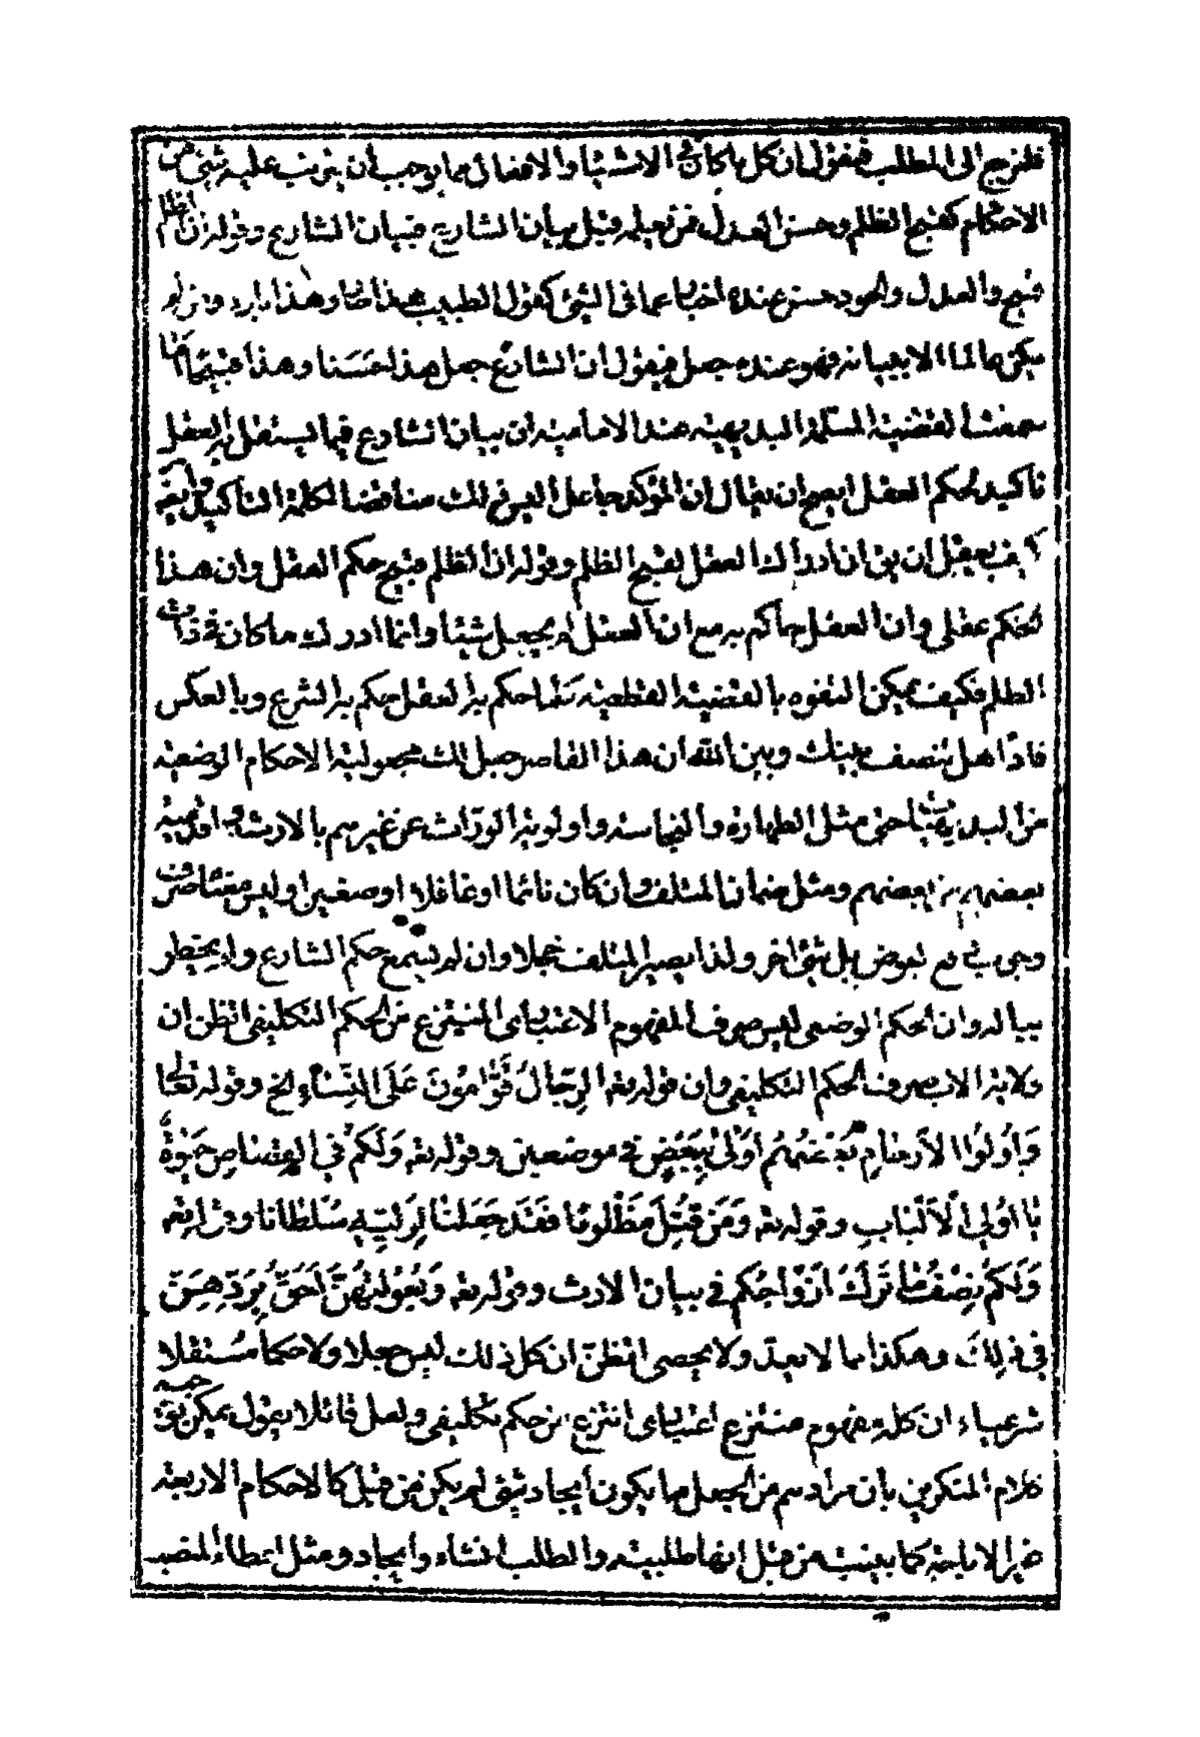 فلنرجع الى المطلب فنقول ان كل ما كان في الاشياء والافعال مما يوجب ان يترتب عليه شئ من
الاحكام كقبح الظلم وحسن العدل فمن قبل بيان الشارع فبيان الشارع وقوله ان الظلم
قبيح والعدل والجود حسن عنده اخبار عما فى الشئ كقول الطبيب هذا حار وهذا بارد ومن لم
يكن عالما الا ببيانه فهو عنده جعل فيقول ان الشارع جعل هذا حسنا وهذا قبيحا
القضية المسلمة البديهية عند الامامية ان بيان الشارع فيما يستقل به العقل
تأكيد لحكم العقل ايصح ان يقال ان المؤكد جاعل اليس ذلك مناقضا لكلمة التأكيد
كيف يعقل ان يق ان ادراك العقل لقبح الظلم وقوله ان الظلم قبيح حكم العقل وان هذا
الحكم عقلى وان العقل حاكم به مع ان العقل لم يجعل شيئا وانما ادرك ما كان في ذات
الظلم فكيف يمكن التفوه بالقضية القطعية كلما حكم به العقل حكم به الشرع وبالعكس
فاذا هل تنصف بينك وبين الله ان هذا القاصر جعل لك مجعولية الاحكام الوضعية
من البديهيات حتى مثل الطهارة والنجاسة واولوية الوراث عن غيرهم بالارث واقدمية
بعضهم من بعضهم ومثل ضمان المتلف وان كان نائما او غافلا او صغيرا وليس
لعوض بل شئ اخر ولذا يصير المتلف خجلا وان لم يسمع حكم الشارع ولا يخطر
بباله وان الحكم الوضعى ليس صرف المفهوم الاعتبارى المنتزع من الحكم التكليفى اتظن ان
ولاية الاب صرف الحكم التكليفى وان قوله تعه الرِّجَالُ قَوَّامُونَ عَلَى النِّسَاءِ الخ وقوله تعالى
وَاُولُوا الْأَرْحَامِ بَعْضُهُمْ أَوْلَى بِبَعْضٍ في موضعين وقوله تعه وَلَكُمْ فِي الْقِصَاصِ حَيٰوةٌ
يَا اُولِي الْأَلْبَابِ وقوله تعه وَمَنْ قُتِلَ مَظْلُومًا فَقَدْ جَعَلْنَا لِوَلِيِّهِ سُلْطَانًا وقوله تعه
وَلَكُمْ نِصْفُ مَا تَرَكَ اَزْوَاجُكُمْ في بيان الارث وقوله تعه وَبُعُولَتُهُنَّ اَحَقُّ بِرَدِّهِنَّ
فِي ذٰلِكَ وهكذا مما لا يعد ولا يحصى اتظن ان كل ذلك ليس جعلا ولا حكما مستقلا
شرعيا وان كله مفهوم منتزع اعتبارى انتزع من حكم تكليفى ولعل قائلا يقول يمكن توجيه
كلام المنكرين بان مرادهم من الجعل ما يكون ايجاد شئ لم يكن من قبل كالاحكام الاربعة
غير الاباحة كما بينت من قبل انها طلبية والطلب انشاء وايجاد ومثل اعطاء المنصب